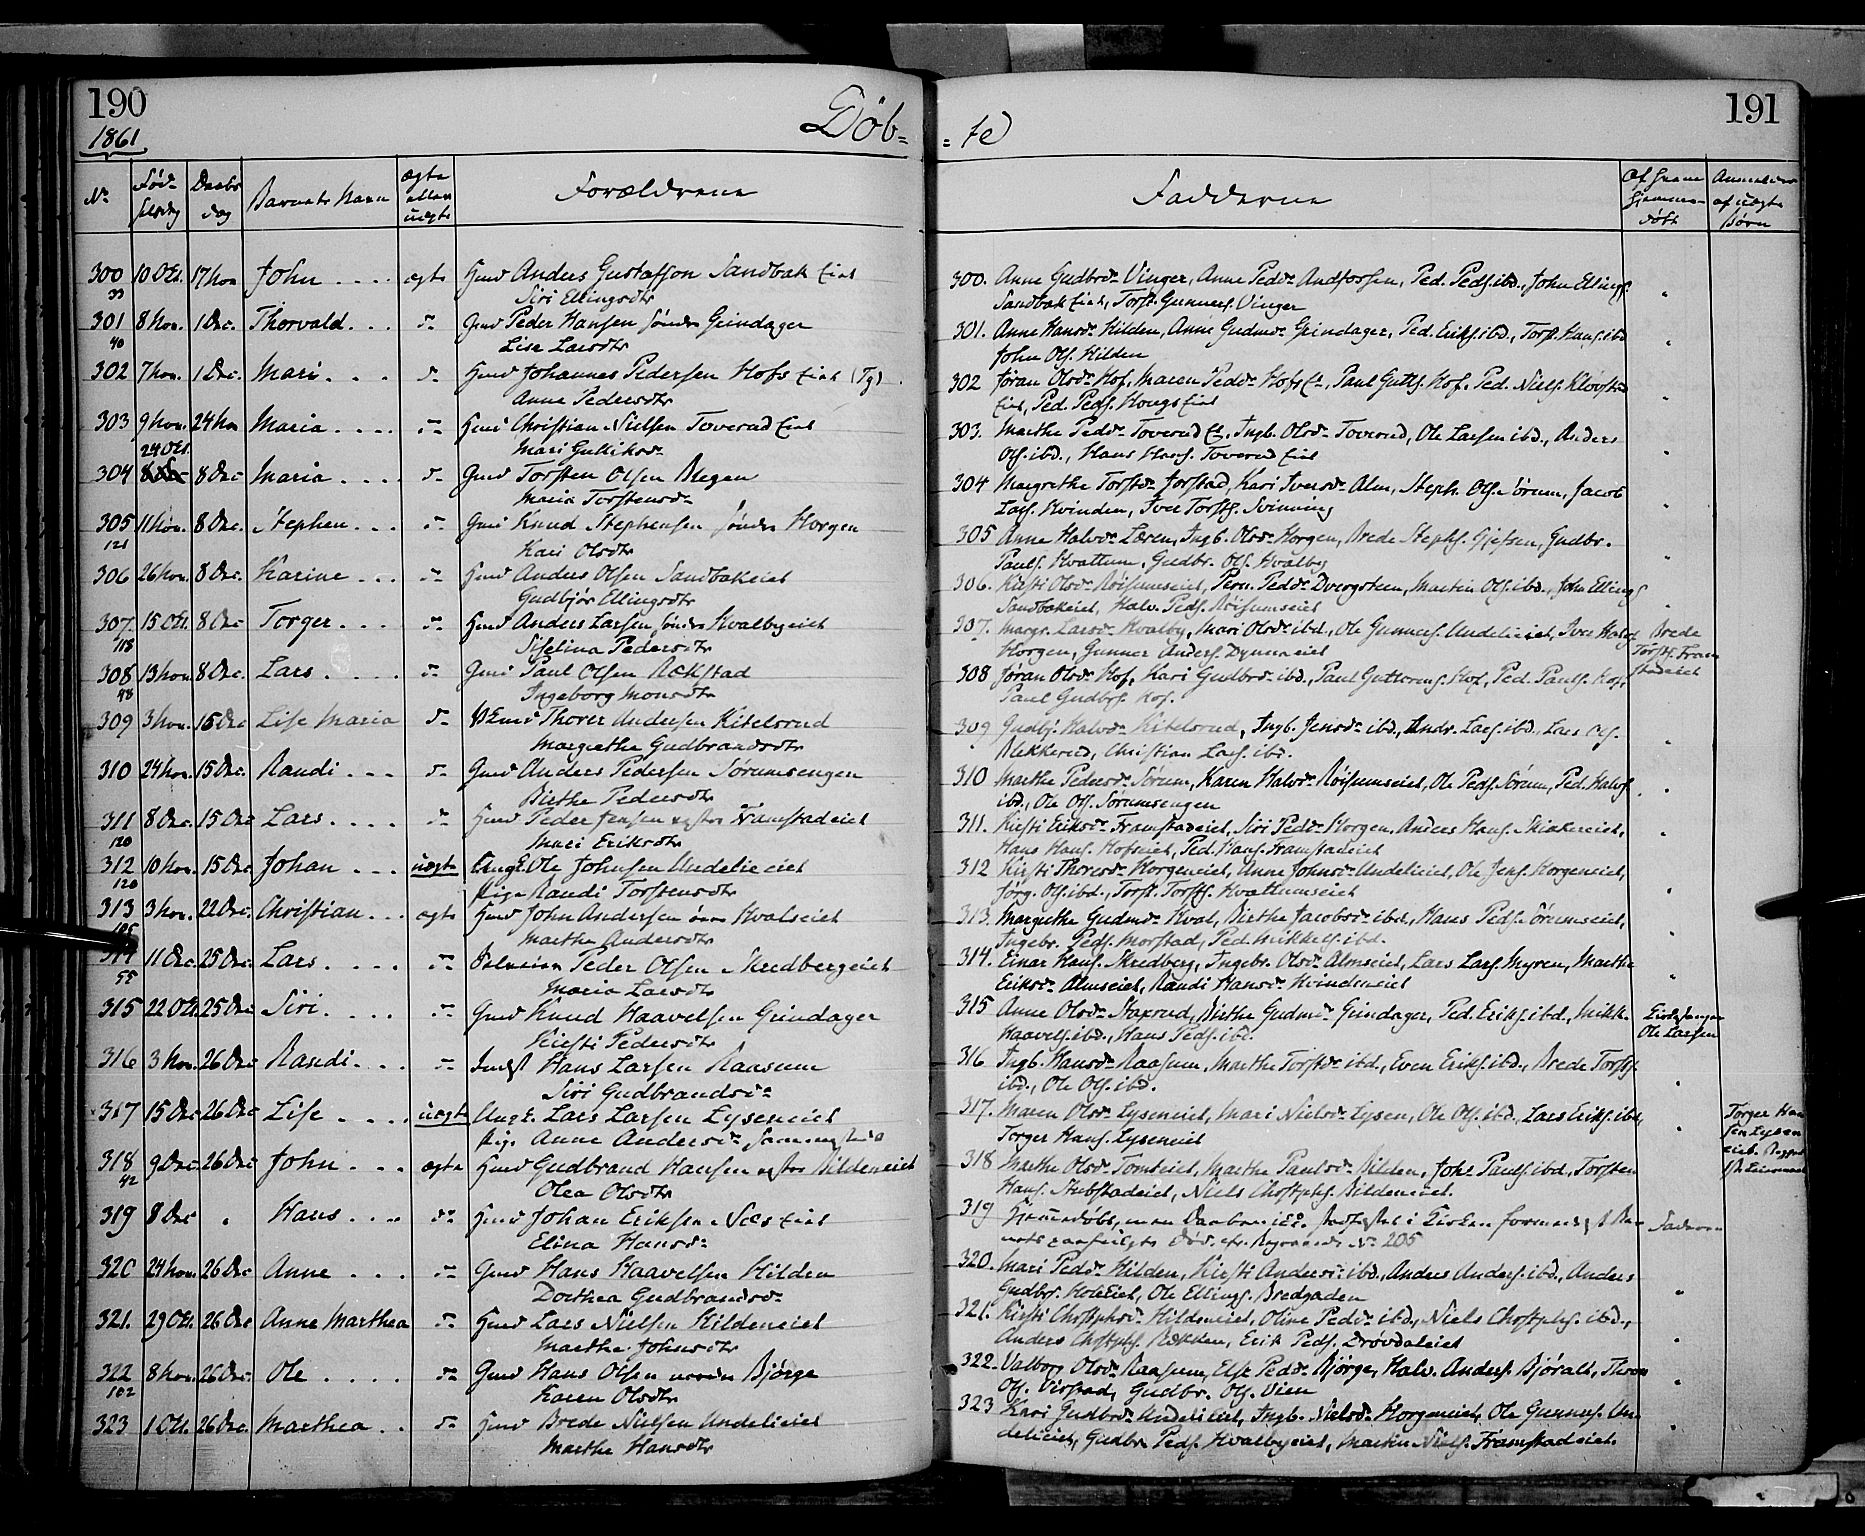 190
1861
Døb-
N°
Fød-
selsdag
Daabs
dag
Barnets Navn
ægte
eller
uægte
Forældrene
300 10 Okt. 17 Nov John .... ægte Hmd Anders Gustafson Sandbak Eiet
33 Siri Ellingsdtr
301 8 Nov. 1 Dec. Thorvald ... do Gmd Peder Hansen søndre Grindager
40 Lise Larsdtr
302 7 Nov. 1 Dec. Mari ... do Hmd Johannes Pedersen Hofs Eiet (Tj)
Anne Pedersdtr
303 9 Nov. 24 Nov Maria .... do Hmd Christian Nielsen Toverud Eiet
24 Okt. Mari Gulliksdr
304 8 Dec Maria .... do Gmd Torsten Olsen Bregen
Maria Torstensdr
305 11 Nov. 8 Dec. Stephen ... do Gmd Knud Stephensen søndre Horgen
121 Kari Olsdtr
306 26 Nov. 8 Dec. Karine ... do Hmd Anders Olsen Sandbakeiet
Gudbjør Ellingsdtr
307 15 Okt. 8 Dec Torger ... do Hmd Anders Larsen søndre Hvalbyeiet
118 Siselina Pedersdtr
308 13 Nov. 8 Dec. Lars .... do Gmd Paul Olsen Rækstad
48 Ingeborg Monsdtr
309 3 Nov. 15 Dec Lise Maria do Thorer Andersen Kitelsrud
Margrethe Gudbrandsdtr
310 24 Nov. 15 Dec. Randi ... do Gmd Anders Pedersen Sørumsengen
Birthe Pedersdtr
311 8 Dec. 15 Dec Lars .... do Hmd Peder Jensen Framstadeiet
120 Mari Eriksdtr
312 10 Nov. 15 Dec Johan ... uægte Ungk. Ole Johnsen Undelieeiet
120 Pige Randi Torstensdtr
313 3 Nov. 22 Dec. Christian ... ægte Hmd John Andersen Hvalseiet
Marthe Andersdtr
314 11 Dec. 25 Dec. Lars .... do Peder Olsen Skredbergeiet
55 Maria Larsdtr
315 22 Okt. 25 Dec Siri .... do Gmd Knud Haavelsen Grindager
Kirsti Pedersdtr
316 3 Nov. 26 Dec Randi .... do Indst Hans Larsen Raasum
Siri Gudbrandsdr
317 15 Dec 26 Dec Lise .... uægte Ungk. Lars Larsen Lyseneiet
Pig. Anne Andersdr sammesteds
318 9 Dec. 26 Dec John ... ægte Hmd Gudbrand Hansen Bildeneiet
42 Olea Olsdtr
319 8 Dec " Hans .... do Hmd Johan Eriksen Næs Eiet
Elina Hansdr
320 24 Nov. 26 Dec Anne .... do Gmd Hans Haavelsen Hilden
Dorthea Gudbrandsdr
321. 29 Okt. 26 Dec Anne Marthea do Hmd Lars Nielsen Hildeneiet
Marthe Johnsdtr
322 8 Nov. 26 Dec. Ole .... do Gmd Hans Olsen Bjørge
102 Karen Olsdtr
323 1 Okt. 26 Dec. Marthea .. do Hmd Brede Nielsen Undelieiet
Marthe Hansdtr
191
-te
Fadderne
Hjemme-
døbt
Anmeldere
af uægte
Børn
300. Anne Gudbrdr Vinger, Anne Pedr Andforsen, Ped. Peds. ibd., John Ellings.
Sandbak Eiet, Torst. Gunners. Vinger
301. Anne Hansdr Hilden, Anne Gudmdr Grindager, Ped. Eriks. ibd., Torst. Hans. ibd
John Ols. Hilden
302 Jøran Olsdr Hof, Maren Pedr Hofs E., Paul Gutts. Hof, Ped. Niels. Klovstad
Eiet, Ped. Peds. Kongs Eiet
303. Marthe Pedr Toverud E., Ingb. Olsdr Toverud, Ole Larsen ibd., Anders
Ols. ibd., Hans Hans. Toverud Eiet
304 Margrethe Torstdr Jorstad, Kari Iversdr Alm, Steph. Ols. Sørum, Jacob
Lars. Kvinden, Iver Torsts. Svinning
305 Anne Halvdr Læren, Ingb. Olsdr Horgen, Brede Stephs. Gjefsen, Gudbr.
Pauls. Hvattum, Gudbr. Ols. Hvalby
306. Kirsti Olsdr Røisumseiet, Pern. Pedr Dvergsteen, Martin Ols. ibd., John Ellings
Sandbakeiet, Halv. Peds. Røisumseiet
307. Margr. Larsdr Hvalby, Mari Olsdr ibd., Ole Gunners. Undelieiet, Iver Halvs. Brede
Horgen, Gunner Anders. Dynnaeiet Torsts. Fram-
stadeiet
308 Jøran Olsdr Hof, Kari Gudbrdr ibd., Paul Guttorms. Hof, Ped. Pauls. Hof,
Paul Gudbrs. Hof.
309 Gudbj. Halvdr Kitelsrud, Ingb. Jensdr ibd., Andr. Lars. ibd. Lars Ols.
Blekkerud, Christian Lars. ibd.
310 Marthe Pedersdr Sørum, Karen Halvdr Røisumseiet, Ole Peds. Sørum, Ped. Halvs.
ibd., Ole Ols. Sørumsengen
311. Kirsti Eriksdr Framstadeiet, Siri Pedr Horgen, Anders Hans. Skiakereiet,
Hans Hans. Hofseiet, Ped. Hans. Framstadeiet
312 Kirsti Thoresdr Horgeneiet, Anne Johnsdr Undelieiet, Ole Jens. Horgeneiet,
Jørg. Ols. ibd., Torst. Torsts. Hvattumseiet
313. Margrethe Gudmdr Hval, Birthe Jacobsdr ibd., Hans Peds. Sørumseiet,
Ingebr. Peds. Morstad, Ped. Mikkels. ibd.
314. Einar Hans. Skredberg, Ingebr. Olsdr Almseiet, Lars Lars. Myren, Marthe
Eriksdr Almseiet, Randi Hansdr Kvindeneiet
315 Anne Olsdr Staxrud, Birthe Gudmdr Grindager, Ped. Eriks. ibd., Mikk.
Haavels. ibd., Hans Peds. ibd. Ole Larsen
316 Ingb. Hansdr Raasum, Marthe Torstdr ibd., Even Eriks. ibd., Brede Torsts.
ibd., Ole Ols. ibd.
317. Maren Olsdr Lyseneiet, Mari Nielsdr Lysen, Ole Ols. ibd., Lars Eriks. ibd,
Torger Hans. Lyseneiet
Torger Han-
sen Lysen
eiet
318 Marthe Olsdr Tomteiet, Marthe Paulsdr Bilden, Johs Pauls. ibd., Torsten
Hans. Stubstadeiet, Niels Chrstphs. Bildeneiet.
319 Hjemmedøbt, men Daaben i Kirken formedelst Bar-
nets paafulgte Død. cfr. Begravede N° 205 Faderen
320. Mari Pedr Hilden, Kirsti Andersdr ibd., Anders Anders. ibd., Anders
Gudbrs. HoleEiet, Ole Ellings. Bredgaden
321. Kirsti Chrstphdr Hildeneiet, Oline Pedr ibd., Niels Chrstphs. ibd.,
Anders Chrstphs. Bækken, Erik Peds. Drøvdaleiet
322. Valborg Olsdr Raasum, Else Pedr Bjørge, Halv. Anders. Bjøralt, Thron
Ols. Virstad, Gudbr. Ols. Vien
323 Kari Gudbrdr Undelieiet, Ingb. Nielsdr Horgeneiet, Ole Gunners. Un-
delieiet, Gudbr. Peds. Hvalbyeiet, Martin Niels. Framstadeiet.